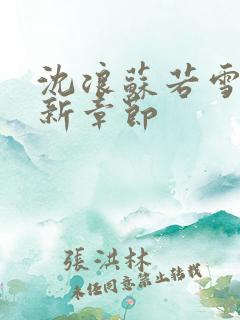 沈浪蘇若雪
新章節
張洪林
未經同意禁止轉載